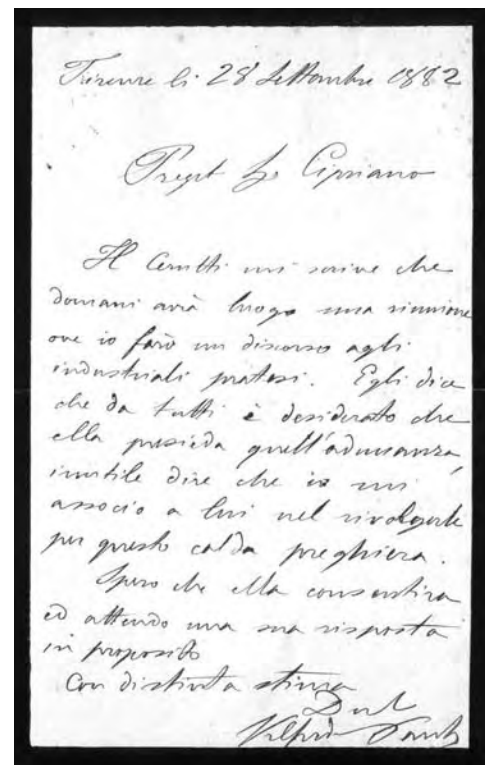 Firenze li 28 Settembre 1882
Pregt Sr Cipriano
Il Cerutti mi scrive che
domani avrà luogo una riunione
ove io farò un discorso agli
industriali pratesi. Egli dice
che da tutti è desiderato che
ella presieda quell'adunanza,
inutile dire che io mi
associo a lui nel rivolgerle
per questo calda preghiera.
Spero che ella consentirà
ed attendo una sua risposta
in proposito
Con distinta stima
Vilfredo Pareto